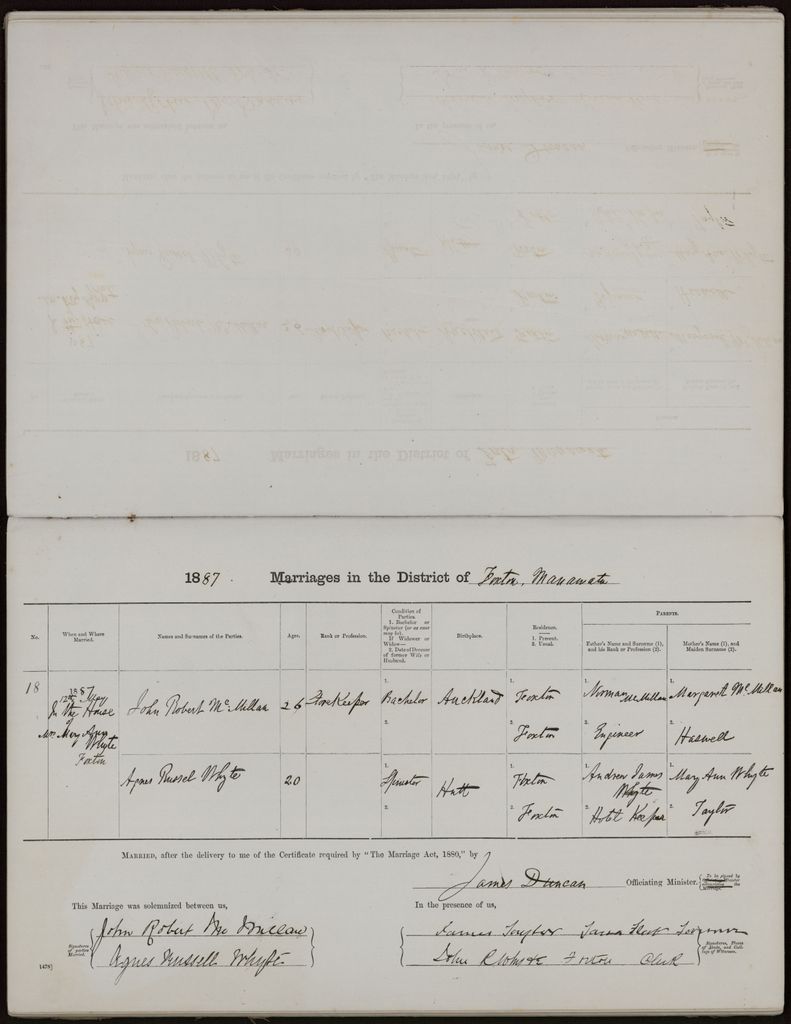 1887. Marriages in the District of Foxton, Manawatu
PARENTS.
No.
When and Where Married.
Names and Sur-names of the Parties.
Ages.
Rank or Profession.
Condition of Parties.
1. Bachelor or Spinster (or as case may be).
If Widower or Widow—
2. Date of Decease of former Wife or Husband.
Birthplace.
Residence.
1. Present.
2. Usual.
Father's Name and Surname (1), and his Rank or Profession (2).
Mother's Name (1), and Maiden Surname (2).
18
1887
12th May
In the House
of
Mrs Mary Ann
Whyte
Foxton
John Robert McMillan
26
Storekeeper
1. Bachelor
2.
Auckland
1. Foxton
2. Foxton
1. Norman McMillan
2. Engineer
1. Margaret McMillan
2. Haswell
Agnes Russel Whyte
20
1. Spinster
2.
Hutt
1. Foxton
2. Foxton
1. Andrew James
Whyte
2. Hotel Keeper
1. Mary Ann Whyte
2. Taylor
MARRIED, after the delivery to me of the Certificate required by "The Marriage Act, 1880," by
James Duncan Officiating Minister.
This Marriage was solemnized between us,
In the presence of us,
Signatures of parties Married.
John Robert McMillan
Agnes Russell Whyte
James Taylor
John R Whyte Foxton Clerk
Signatures, Places of Abode, and Callings of Witnesses.
1478]